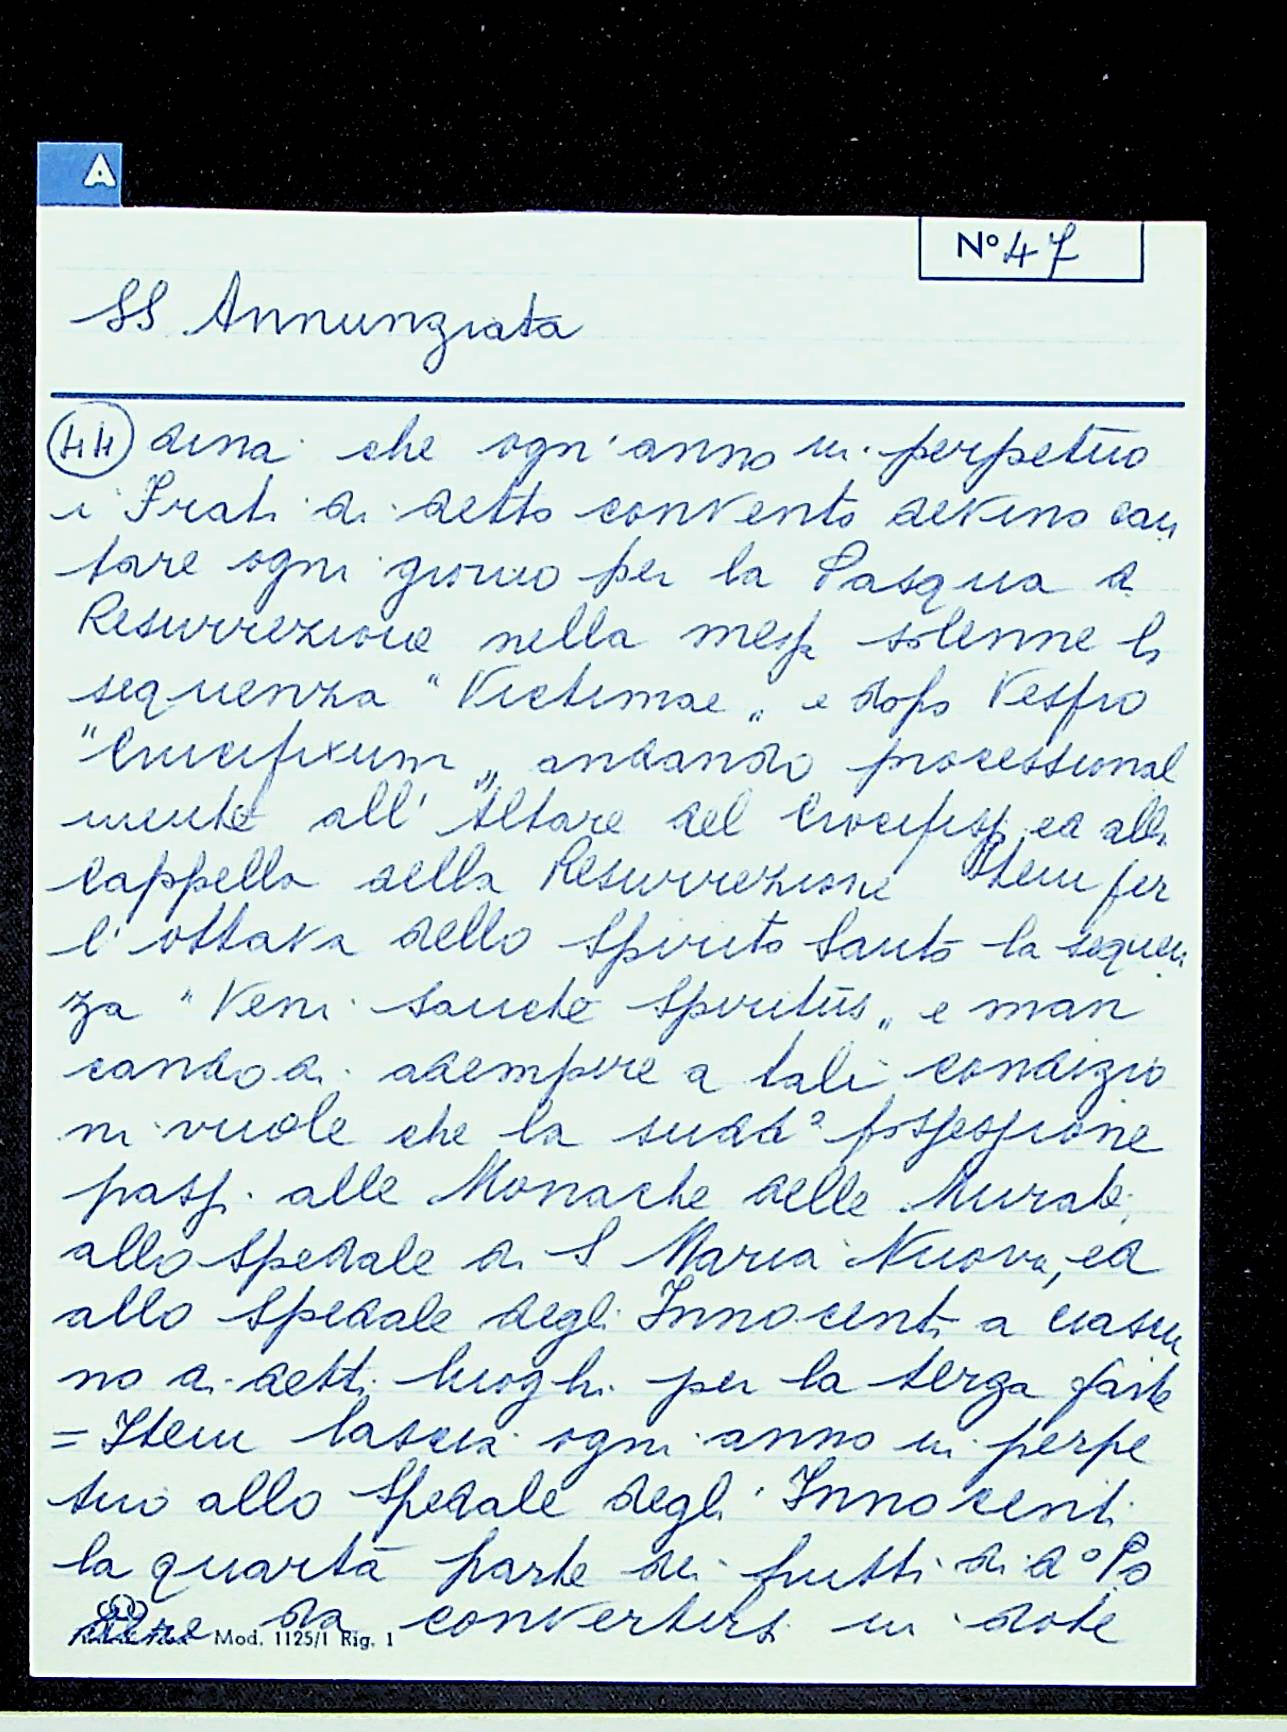 A
N° 47
SS Annunziata
44 dina che ogn'anno in perpetuo
i Frati di detto convento devino can
tare ogni giorno per la Pasqua di
Resurrezione nella messa solenne la
sequenza "Victimae„ e dopo Vespro
"Crucifixum„ andando processional
mente all'Altare del Crocifisso ed alla
Cappella della Resurrezione Item per
l'ottava dello Spirito Santo la sequen
za "Veni Sancte Spiritus„ e man
cando di adempire a tali condizio
ni vuole che la sudda possessione
passi alle Monache delle Murate,
allo Spedale di S Maria Nuova, ed
allo Spedale degli Innocenti a ciascu
no di detti luoghi per la terza parte
= Item lascia ogni anno in perpe
tuo allo Spedale degli Innocenti
la quarta parte dei frutti di do Po
dere da convertirsi in dote
Mod. 1125/1 Rig. 1